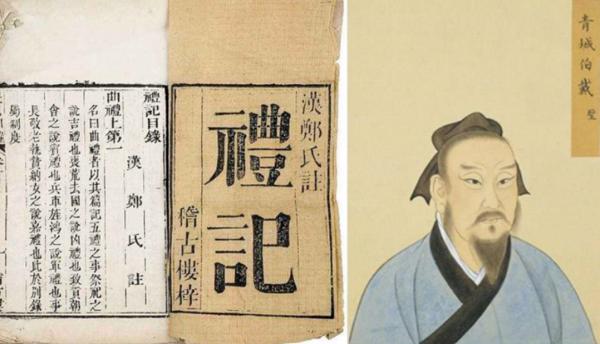 漢鄭氏註
禮記
稽古樓梓
禮記目錄
漢鄭氏註
曲禮上第一
名曰曲禮者以其篇記五禮之事祭祀之
說吉禮也喪荒去國之說凶禮也致貢朝
會之說賓禮也兵車旌鴻之說軍禮也事
長敬老執贄納女之說嘉禮也此於別錄
屬制度
城伯戴
聖